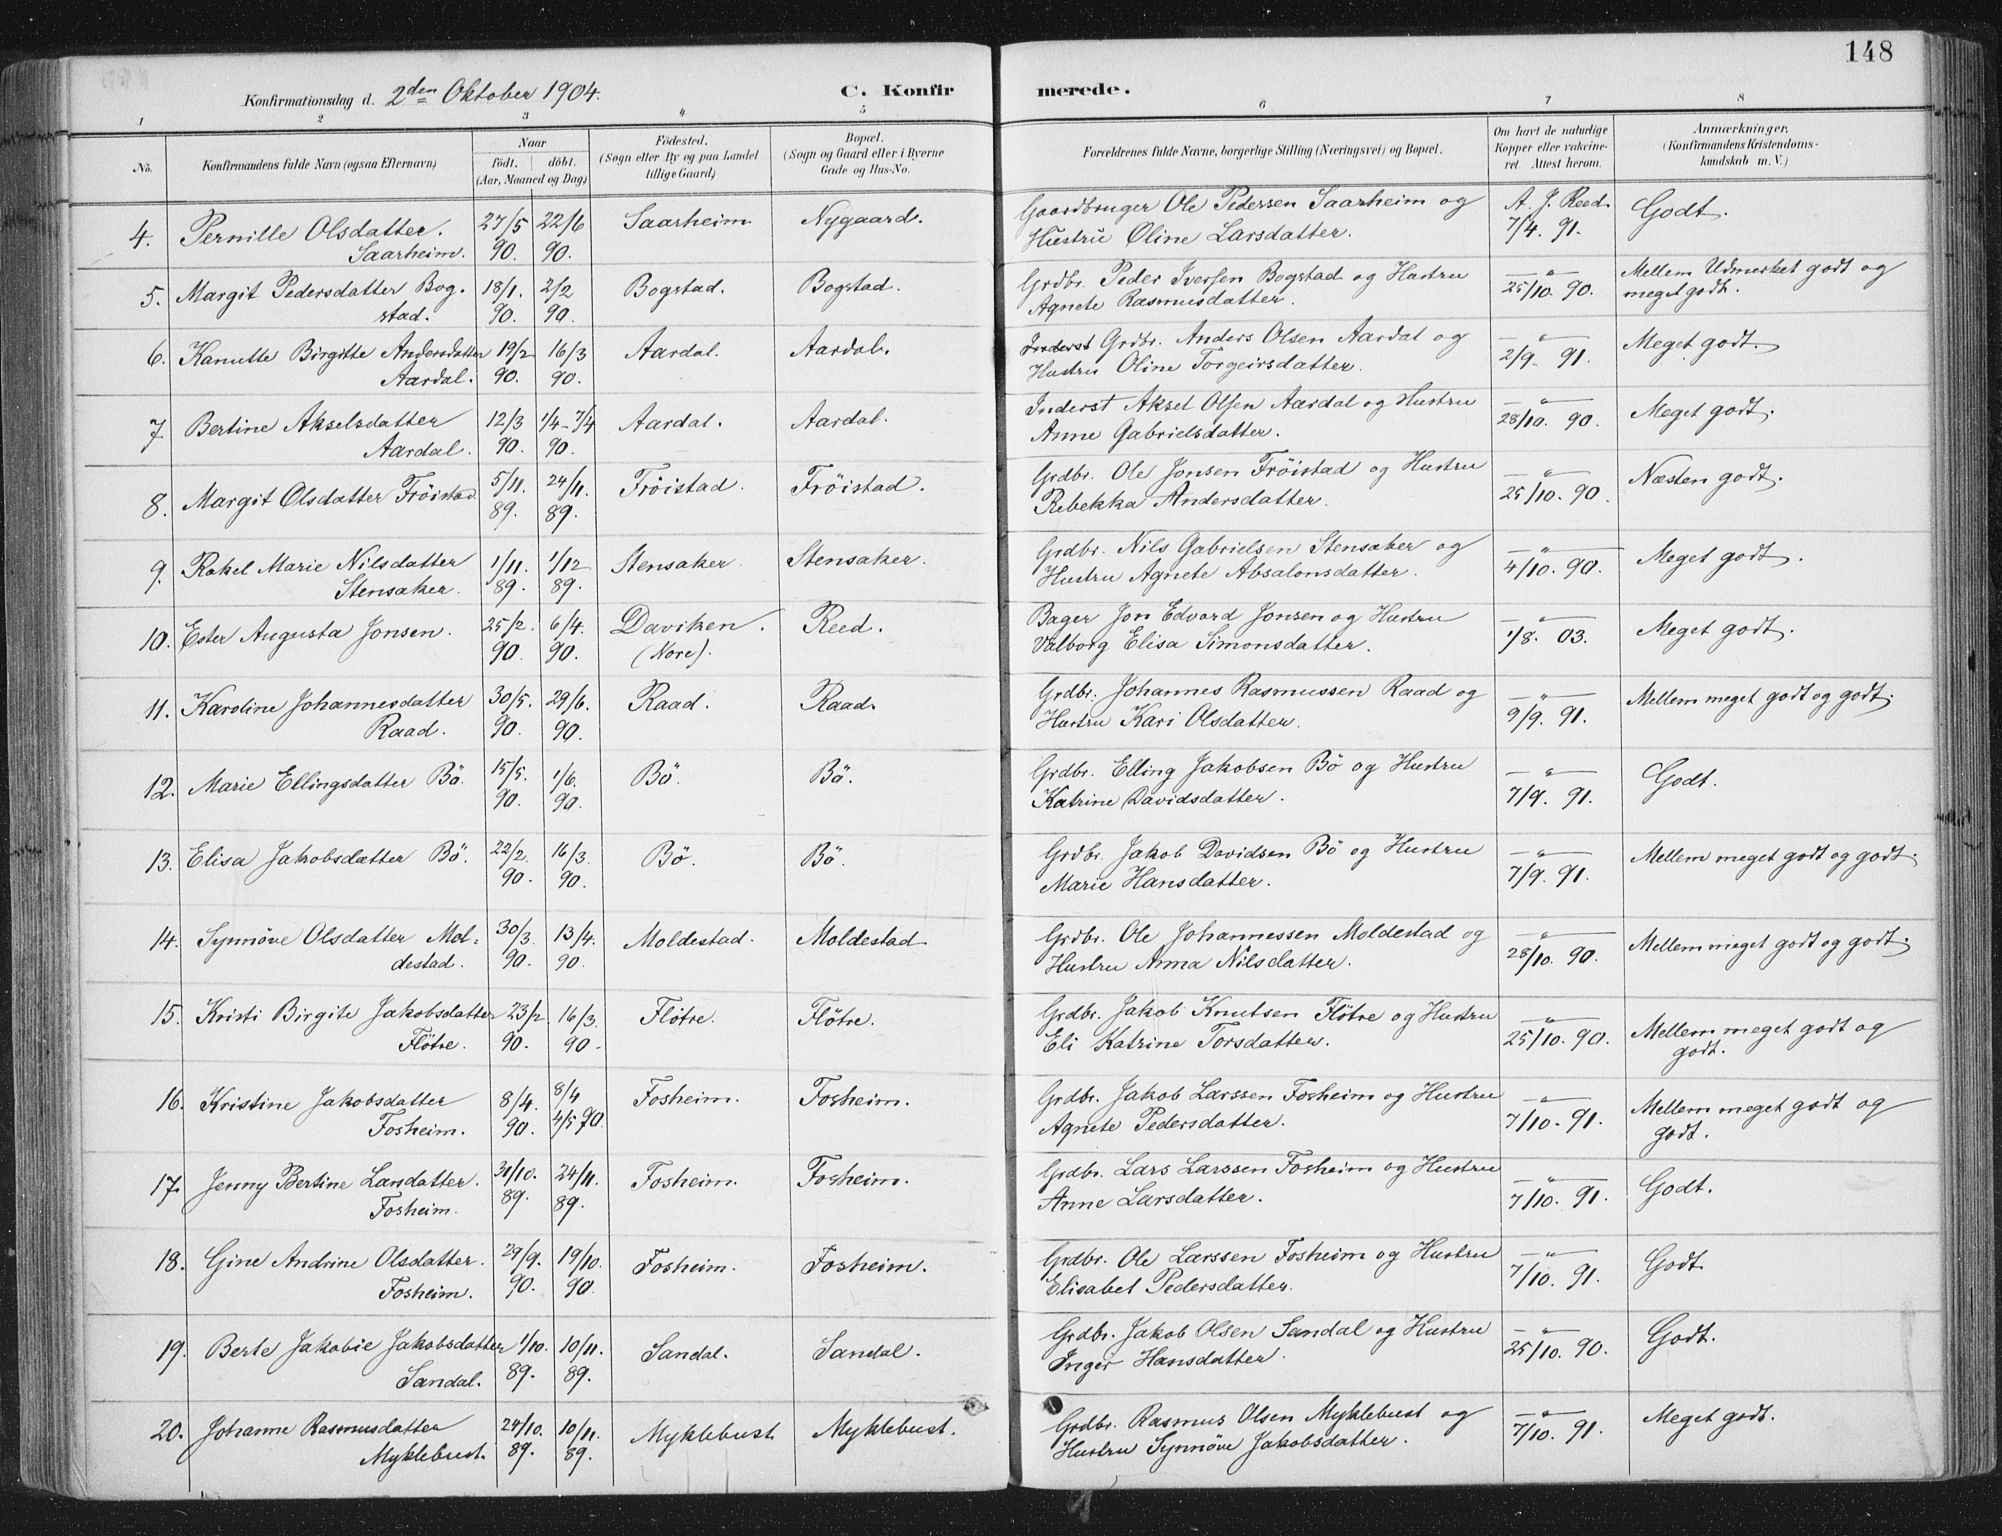 148
Konfirmationsdag d. 2den Oktober 1904. C. Konfirmerede.
1 2 3 4 5 6 7 8
No. Konfirmandens fulde Navn (ogsaa Efternavn) Naar födt. döbt. (Aar, Maaned og Dag) Födested. (Sogn eller By og paa Landet tillige Gaard) Bopæl. (Sogn og Gaard eller i Byerne Gade og Hus-No. Forældrenes fulde Navne, borgerlige Stilling (Næringsvei) og Bopæl. Om havt de naturlige Kopper eller vakcineret. Attest herom. Anmærkninger, (Konfirmandens Kristendomskundskab m. V.)
4. Pernille Olsdatter. 27/5 22/6 Saarheim Nygaard. Gaardbruger Ole Pedersen Saarheim og A. J. Reed. Godt.
Saarheim. 90. 90. Hustru Oline Larsdatter. 7/4. 91.
5. Margit Pedersdatter Bog- 18/1. 2/2 Bogstad. Bogstad. Grdbr. Peder Iversen Bogstad og Hustru — " — Mellem Udmerket godt og
stad. 90. 90. Agnete Rasmusdatter. 25/10. 90. meget godt.
6. Kanutte Birgitte Andersdatter 19/2 16/3 Aardal. Aardal. Inderst Grdbr. Anders Olsen Aardal og — " — Meget godt.
Aardal. 90. 90. Hustru Oline Torgeirsdatter. 2/9. 91.
7. Bertine Akselsdatter 12/3 1/4-7/4 Aardal. Aardal. Inderst Aksel Olsen Aardal og Hustru — " — Meget godt.
Aardal. 90. 90. Anne Gabrielsdatter. 28/10. 90.
8. Margit Olsdatter Fröistad 5/11. 24/11. Fröistad. Fröistad. Grdbr. Ole Jonsen Fröistad og Hustru — " — Næsten godt.
89. 89. Rebekka Andersdatter. 25/10. 90.
9. Rakel Marie Nilsdatter 1/11. 1/12 Stensaker. Stensaker. Grdbr. Nils Gabrielsen Stensaker og — " — Meget godt.
Stensaker. 89. 89. Hustru Agnete Absalonsdatter. 4/10. 90.
10. Ester Augusta Jonsen. 25/2. 6/4. Daviken. Reed. Bager Jon Edvard Jonsen og Hustru — " — Meget godt.
90. 90. (Nore). Valborg Elisa Simonsdatter. 1/8. 03.
11. Karoline Johannesdatter 30/5. 29/6. Raad. Raad. Grdbr. Johannes Rasmussen Raad og — " — Mellem meget godt og godt.
Raad. 90. 90. Hustru Kari Olsdatter. 9/9. 91.
12. Marie Ellingsdatter Bö. 15/5. 1/6. Bö. Bö. Grdbr. Elling Jakobsen Bö og Hustru — " — Godt.
90. 90. Katrine Davidsdatter. 7/9. 91.
13. Elisa Jakobsdatter Bö. 22/2. 16/3. Bö. Bö. Grdbr. Jakob Davidsen Bö og Hustru — " — Mellem meget godt og godt.
90. 90. Marie Hansdatter. 7/9. 91.
14. Synnöve Olsdatter Mol- 30/3. 13/4. Moldestad. Moldestad Grdbr. Ole Johannessen Moldestad og — " — Mellem meget godt og godt.
destad. 90. 90. Hustru Anna Nilsdatter. 28/10. 90.
15. Kristi Birgite Jakobsdatter 23/2. 16/3. Flötre. Flötre. Grdbr. Jakob Knutsen Flötre og Hustru — " — Mellem meget godt og
Flötre. 90. 90. Eli Katrine Torsdatter. 25/10. 90. godt.
16. Kristine Jakobsdatter 8/4. 8/4 Fosheim. Fosheim. Grdbr. Jakob Larssen Fosheim og Hustru — " — Mellem meget godt og
Fosheim. 90. 4/5 90. Agnete Pedersdatter. 7/10. 91. godt.
17. Jenny Bertine Larsdatter. 31/10. 24/11. Fosheim. Fosheim. Grdbr. Lars Larssen Fosheim og Hustru — " — Godt.
Fosheim. 89. 89. Anne Larsdatter. 7/10. 91.
18. Gine Andrine Olsdatter. 29/9. 19/10. Fosheim. Fosheim. Grdbr. Ole Larssen Fosheim og Hustru — " — Godt.
Fosheim. 90. 90. Elisabet Pedersdatter. 7/10. 91.
19. Berte Jakobie Jakobsdatter 1/10. 10/11. Sandal. Sandal. Grdbr. Jakob Olsen Sandal og Hustru — " — Godt.
Sandal. 89. 89. Inger Hansdatter. 25/10. 90.
20. Johanne Rasmusdatter 24/10. 10/11. Myklebust Myklebust. Grdbr. Rasmus Olsen Myklebust og — " — Meget godt.
Myklebust. 89. 89. Hustru Synnöve Jakobsdatter. 7/10. 91.